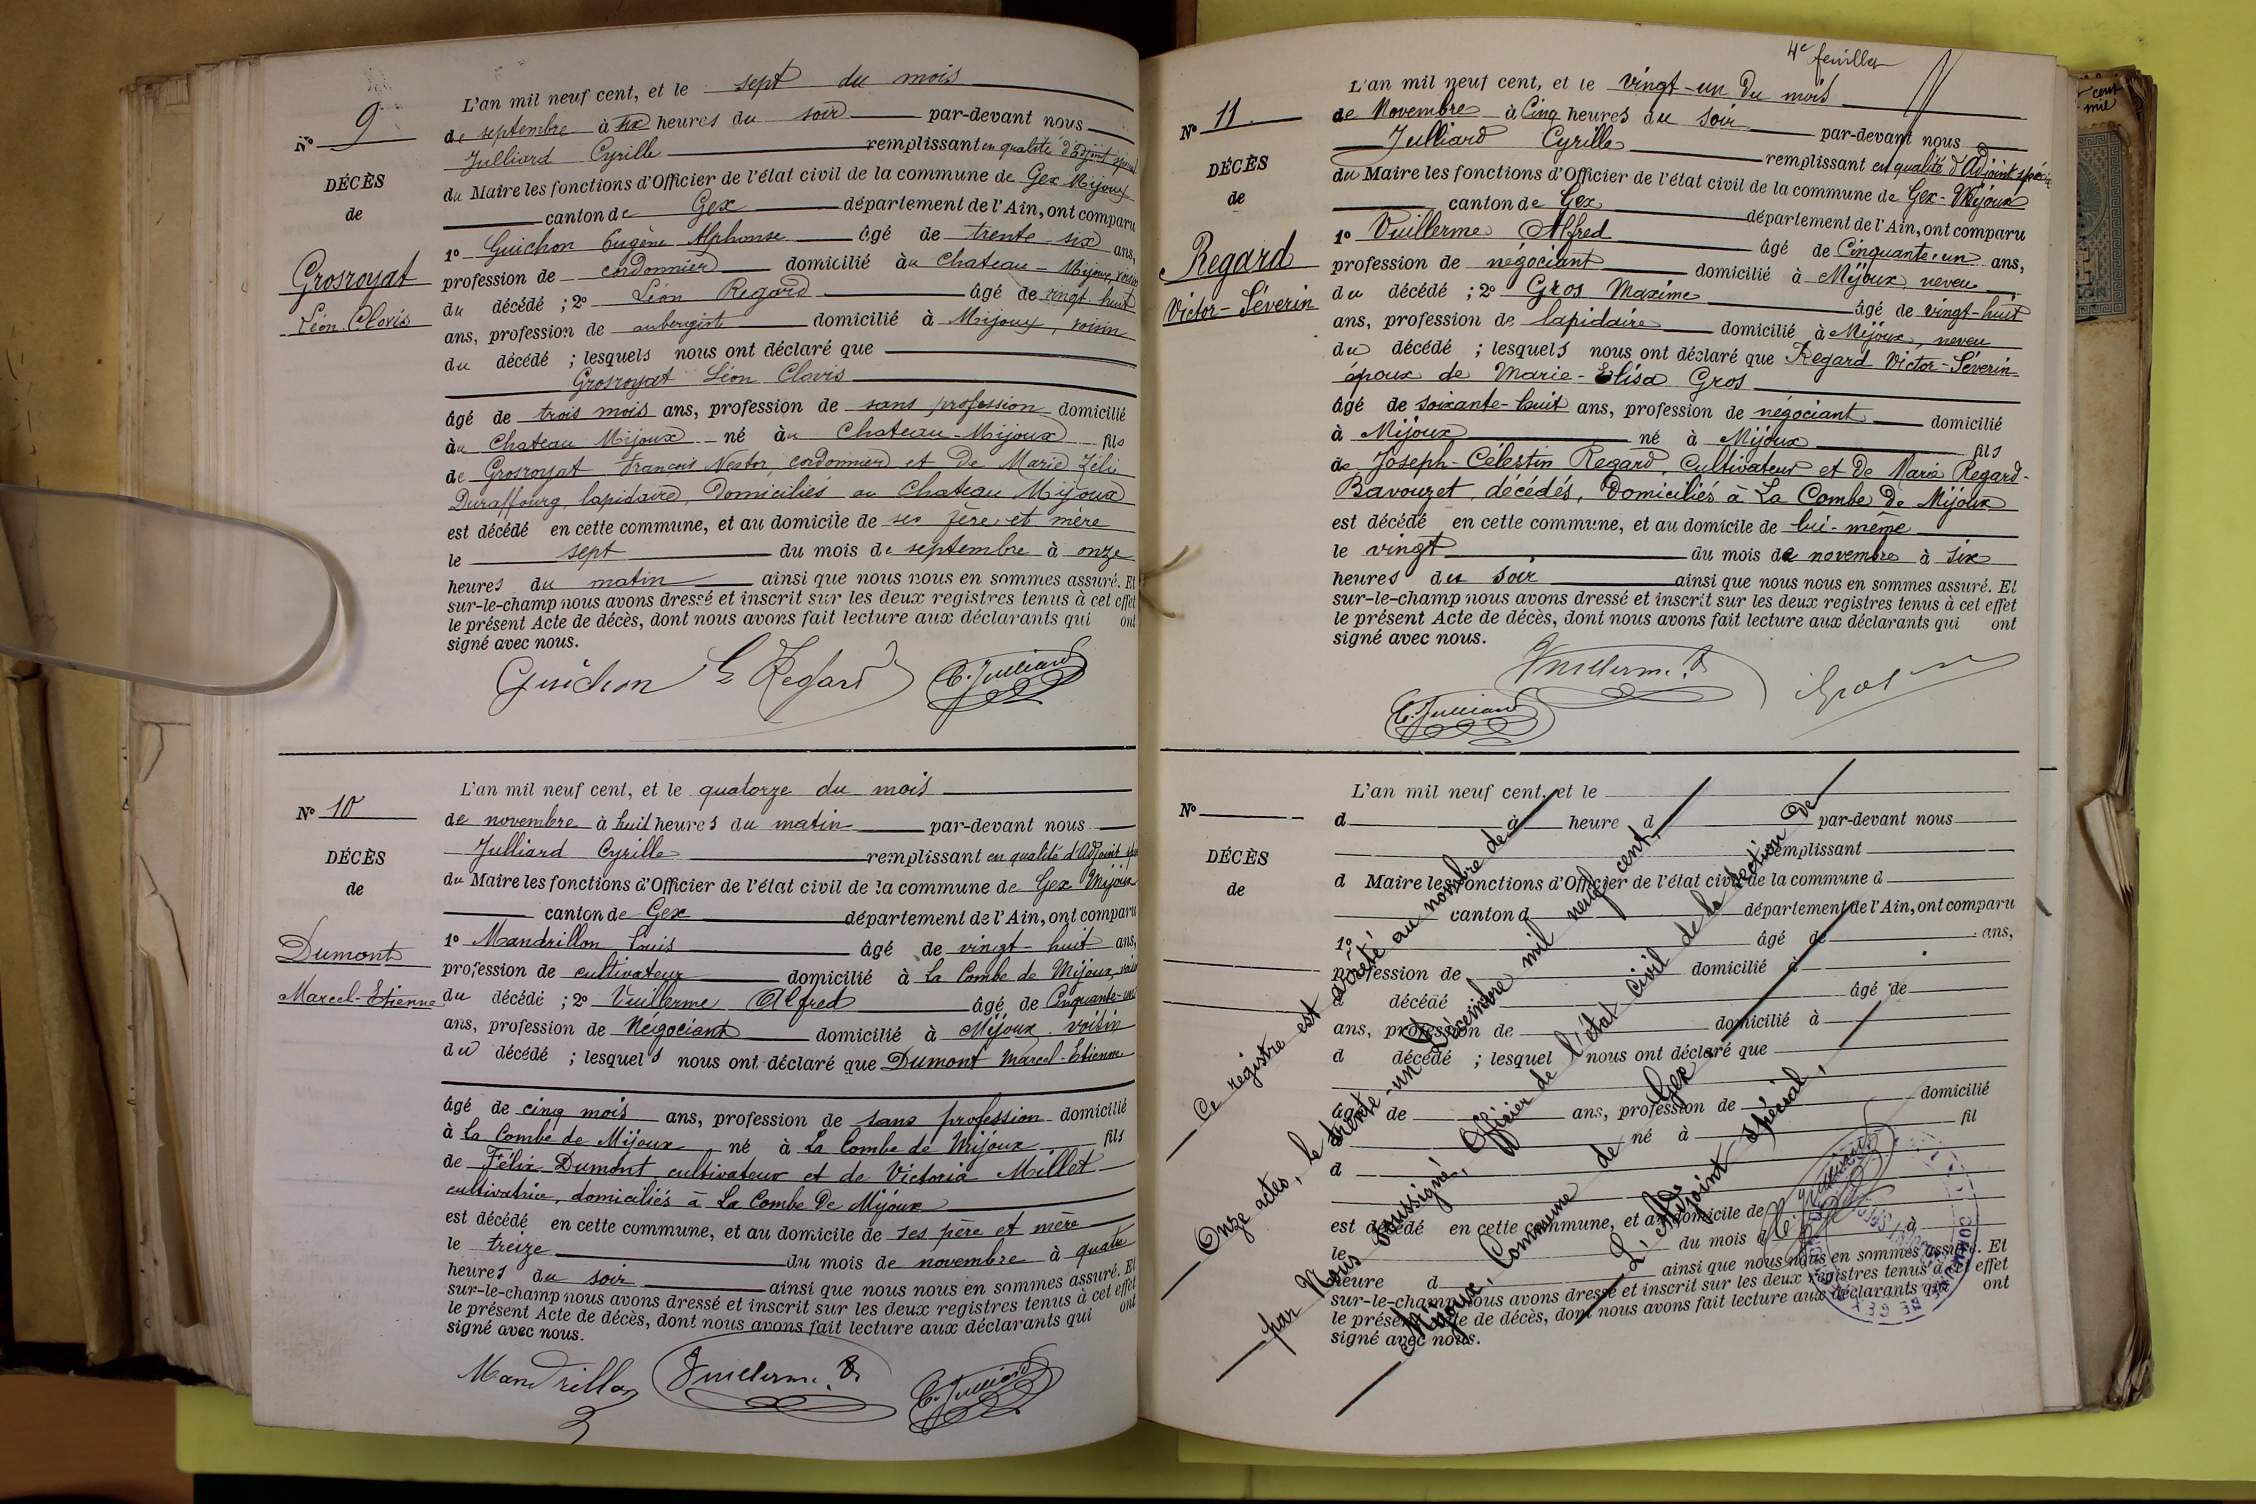 L'an mil neuf cent, et le sept du mois
N° 9
de septembre à six heures du soir par-devant nous
Julliard Cyrille remplissant en qualité d'Adjoint spécial
DÉCÈS
du Maire les fonctions d'Officier de l'état civil de la commune de Gex Mijoux
de
canton de Gex département de l'Ain, ont comparu
Grosroyat
Léon Clovis
1° Guichon Eugène Alphonse âgé de trente six ans,
profession de cordonnier domicilié au Chateau-Mijoux, voisin
du décédé ; 2° Léon Regard âgé de vingt huit
ans, profession de aubergiste domicilié à Mijoux, voisin
du décédé ; lesquels nous ont déclaré que
Grosroyat Léon Clovis
âgé de trois mois ans, profession de sans profession domicilié
au Chateau Mijoux né au Chateau-Mijoux fils
de Grosroyat François Nestor, cordonnier et de Marie Zélie
Duraffourg, lapidaire, Domiciliés au Chateau Mijoux
est décédé en cette commune, et au domicile de ses père et mère
le sept du mois de septembre à onze
heures du matin ainsi que nous nous en sommes assuré. Et
sur-le-champ nous avons dressé et inscrit sur les deux registres tenus à cet effet
le présent Acte de décès, dont nous avons fait lecture aux déclarants qui ont
signé avec nous.
Guichon L Regard C. Julliard
L'an mil neuf cent, et le quatorze du mois
N° 10
de novembre à huit heures du matin par-devant nous
Julliard Cyrille remplissant en qualité d'Adjoint spé
DÉCÈS
du Maire les fonctions d'Officier de l'état civil de la commune de Gex Mijoux
de
canton de Gex département de l'Ain, ont comparu
Dumont
Marcel-Etienne
1° Mandrillon Louis âgé de vingt-huit ans,
profession de cultivateur domicilié à La Combe de Mijoux, voisin
du décédé ; 2° Vuillerme Alfred âgé de Cinquante-un
ans, profession de Négociant domicilié à Mijoux voisin
du décédé ; lesquels nous ont déclaré que Dumont Marcel-Etienne
âgé de cinq mois ans, profession de sans profession domicilié
à La Combe de Mijoux né à La Combe de Mijoux fils
de Félix Dumont cultivateur et de Victoria Millet
cultivatrice, domiciliés à La Combe De Mijoux
est décédé en cette commune, et au domicile de ses père et mère
le treize du mois de novembre à quatre
heures du soir ainsi que nous nous en sommes assuré. Et
sur-le-champ nous avons dressé et inscrit sur les deux registres tenus à cet effet
le présent Acte de décès, dont nous avons fait lecture aux déclarants qui ont
signé avec nous.
Mandrillon Vuillerme A C. Julliard
4e feuillet
L'an mil neuf cent, et le vingt-un Du mois
N° 11
de Novembre à Cinq heures du soir par-devant nous
Julliard Cyrille remplissant en qualité d'Adjoint spécial
DÉCÈS
du Maire les fonctions d'Officier de l'état civil de la commune de Gex-Mijoux
de
canton de Gex département de l'Ain, ont comparu
Regard
Victor-Séverin
1° Vuillerme Alfred âgé de Cinquante-un ans,
profession de négociant domicilié à Mijoux neveu
du décédé ; 2° Gros Maxime âgé de vingt-huit
ans, profession de lapidaire domicilié à Mijoux, neveu
du décédé ; lesquels nous ont déclaré que Regard Victor-Séverin
époux de Marie-Elisa Gros
âgé de soixante-huit ans, profession de négociant domicilié
à Mijoux né à Mijoux fils
de Joseph-Célestin Regard, Cultivateur et De Marie Regard-
Bavouzet, décédés, Domiciliés à La Combe De Mijoux
est décédé en cette commune, et au domicile de lui-même
le vingt du mois de novembre à six
heures du soir ainsi que nous nous en sommes assuré. Et
sur-le-champ nous avons dressé et inscrit sur les deux registres tenus à cet effet
le présent Acte de décès, dont nous avons fait lecture aux déclarants qui ont
signé avec nous.
Vuillerme A Gros
C. Julliard
L'an mil neuf cent, et le
N°
d à heure d par-devant nous
remplissant
DÉCÈS
d Maire les fonctions d'Officier de l'état civil de la commune d
de
canton d département de l'Ain, ont comparu
1° âgé de ans,
profession de domicilié à
d décédé âgé de
ans, profession de domicilié à
d décédé ; lesquel nous ont déclaré que
âgé de ans, profession de domicilié
né à fil
d
est décédé en cette commune, et au domicile de
le du mois d à
heure d ainsi que nous nous en sommes assuré. Et
sur-le-champ nous avons dressé et inscrit sur les deux registres tenus à cet effet
le présent Acte de décès, dont nous avons fait lecture aux déclarants qui ont
signé avec nous.
Ce registre est arrêté au nombre de
Onze actes, le trente-un Décembre mil neuf cent,
par Nous soussigné, Officier de l'état civil de la section De
Mijoux, Commune de Gex,
L'Adjoint spécial,
C. Julliard
COMMUNE DE GEX
cent
mil